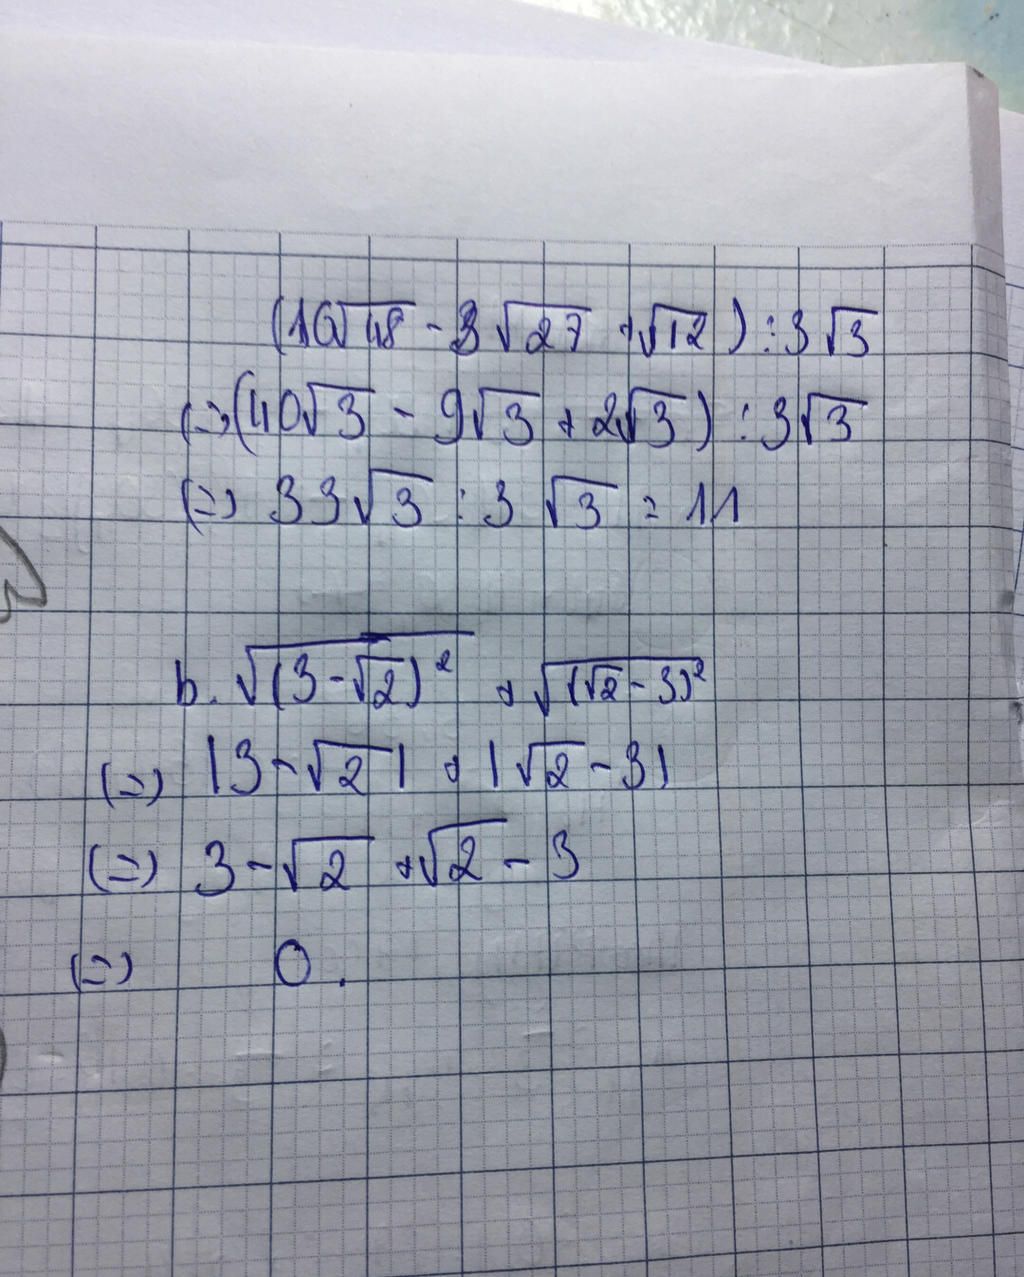 (10√48 - 3√27 + √12) : 3√3
(=) (40√3 - 9√3 + 2√3) : 3√3
(=) 33√3 : 3√3 = 11
b. √(3-√2)² + √(√2-3)²
(=) |3-√2| + |√2-3|
(=) 3-√2 + √2-3
(=) 0.